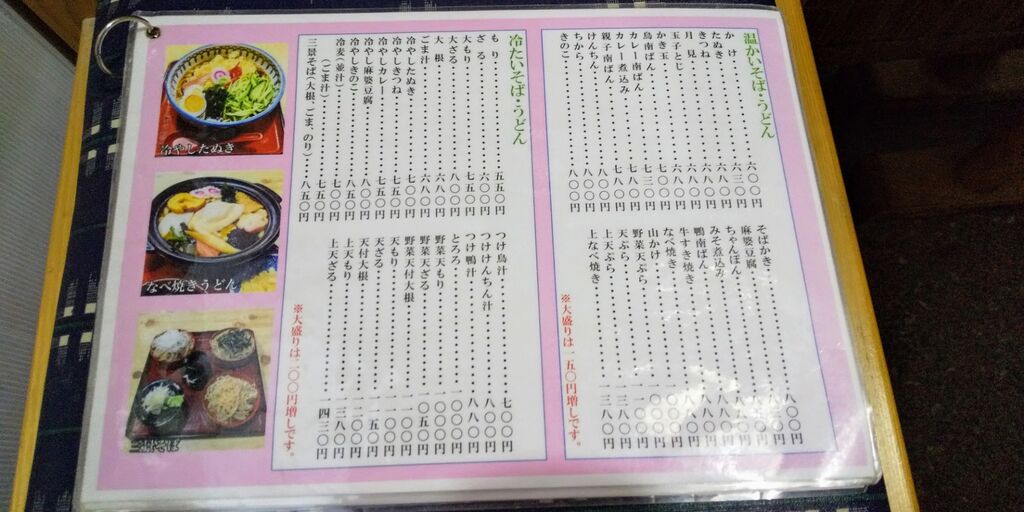 温かいそば・うどん
かけ 六〇〇円
たぬき 六三〇円
きつね 六八〇円
月見 六八〇円
玉子とじ 六八〇円
かき玉 六八〇円
鳥南ばん 七〇〇円
カレー南ばん 七三〇円
カレー煮込み 七八〇円
親子南ばん 七八〇円
けんちん 八〇〇円
ちから 八〇〇円
きのこ 八〇〇円
そばがき 八〇〇円
麻婆豆腐
ちゃんぽん
みそ煮込み
鴨南ばん
牛すき焼き
なべ焼き
山かけ
野菜天ぷら
天ぷら
上天ぷら
上なべ焼き 一三八〇円
※大盛りは一五〇円増しです。
冷たいそば・うどん
もり 五五〇円
ざる 六〇〇円
大もり 七五〇円
大ざる 八〇〇円
大根 六八〇円
ごま汁 六八〇円
冷やしたぬき 七〇〇円
冷やしきつね 七五〇円
冷やしカレー 七五〇円
冷やし麻婆豆腐 八〇〇円
冷やしきのこ 八五〇円
冷麦（並汁） 七〇〇円
（ごま汁） 七五〇円
三景そば（大根、ごま、のり） 八五〇円
つけ鳥汁 七〇〇円
つけけんちん汁 八〇〇円
つけ鴨汁 八八〇円
とろろ 一〇〇〇円
野菜天もり 一〇〇〇円
野菜天ざる 一〇五〇円
野菜天付大根 一一〇〇円
天もり 一一〇〇円
天ざる
天付大根
上天もり 一三八〇円
上天ざる 一四三〇円
※大盛りは二〇〇円増しです。
冷やしたぬき
なべ焼きうどん
三景そば